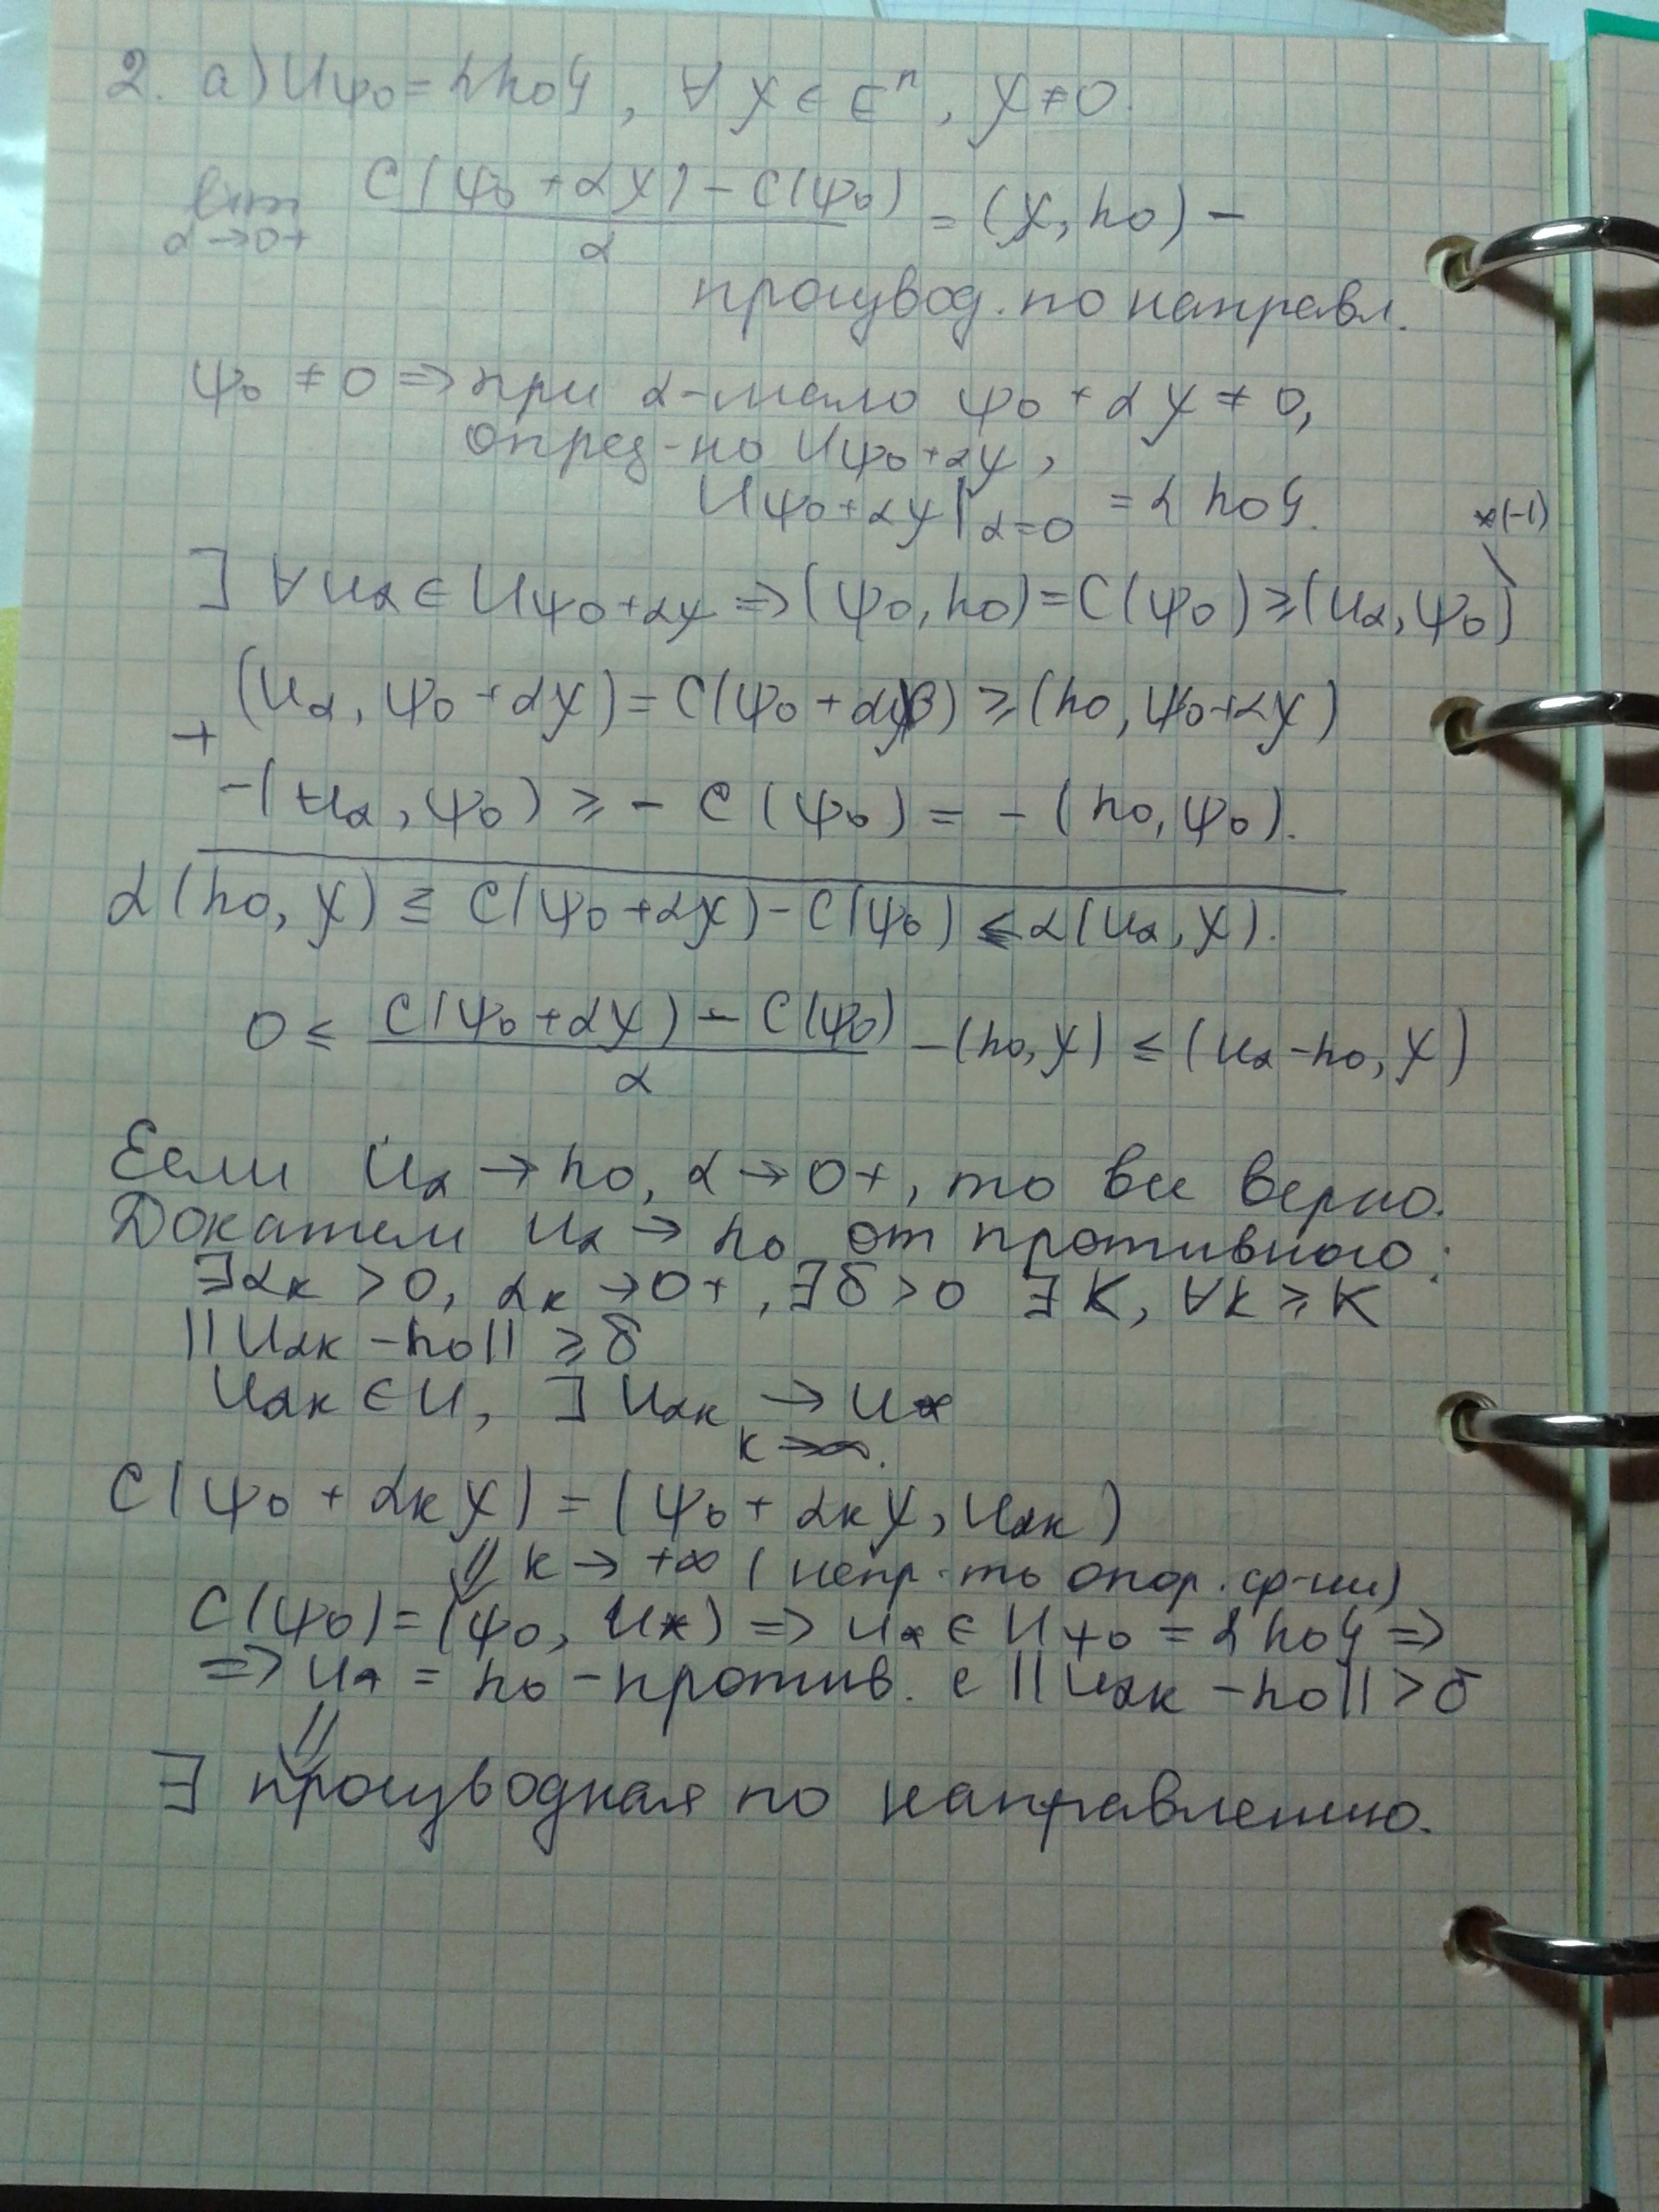 2. а) Uψ₀ = {h₀}, ∀ χ ∈ Eⁿ, χ ≠ 0.
lim α→0+ (C(ψ₀ + αχ) - C(ψ₀)) / α = (χ, h₀) -
производ. по направл.
ψ₀ ≠ 0 ⇒ при α-мало ψ₀ + αχ ≠ 0,
опред-но Uψ₀+αχ,
Uψ₀+αχ|α=0 = {h₀}.
*(-1)
∃ ∀ uα ∈ Uψ₀+αχ ⇒ (ψ₀, h₀) = C(ψ₀) ≥ (uα, ψ₀)
(uα, ψ₀ + αχ) = C(ψ₀ + αχ) ≥ (h₀, ψ₀+αχ)
+
-(uα, ψ₀) ≥ - C(ψ₀) = - (h₀, ψ₀).
α(h₀, χ) ≤ C(ψ₀+αχ) - C(ψ₀) ≤ α(uα, χ).
0 ≤ (C(ψ₀ + αχ) - C(ψ₀)) / α - (h₀, χ) ≤ (uα - h₀, χ)
Если uα → h₀, α → 0+, то все верно.
Докажем uα → h₀ от противного:
∃ αк > 0, αк → 0+, ∃ δ > 0 ∃ K, ∀к ≥ K
||uαк - h₀|| ≥ δ
uαк ∈ U, ∃ uαк → u* к→∞.
C(ψ₀ + αкχ) = (ψ₀ + αкχ, uαк)
⇓ к → +∞ (непр-ть опор. ф-ии)
C(ψ₀) = (ψ₀, u*) ⇒ u* ∈ Uψ₀ = {h₀} ⇒
⇒ u* = h₀ - против. с ||uαк - h₀|| > δ
⇓
∃ производная по направлению.